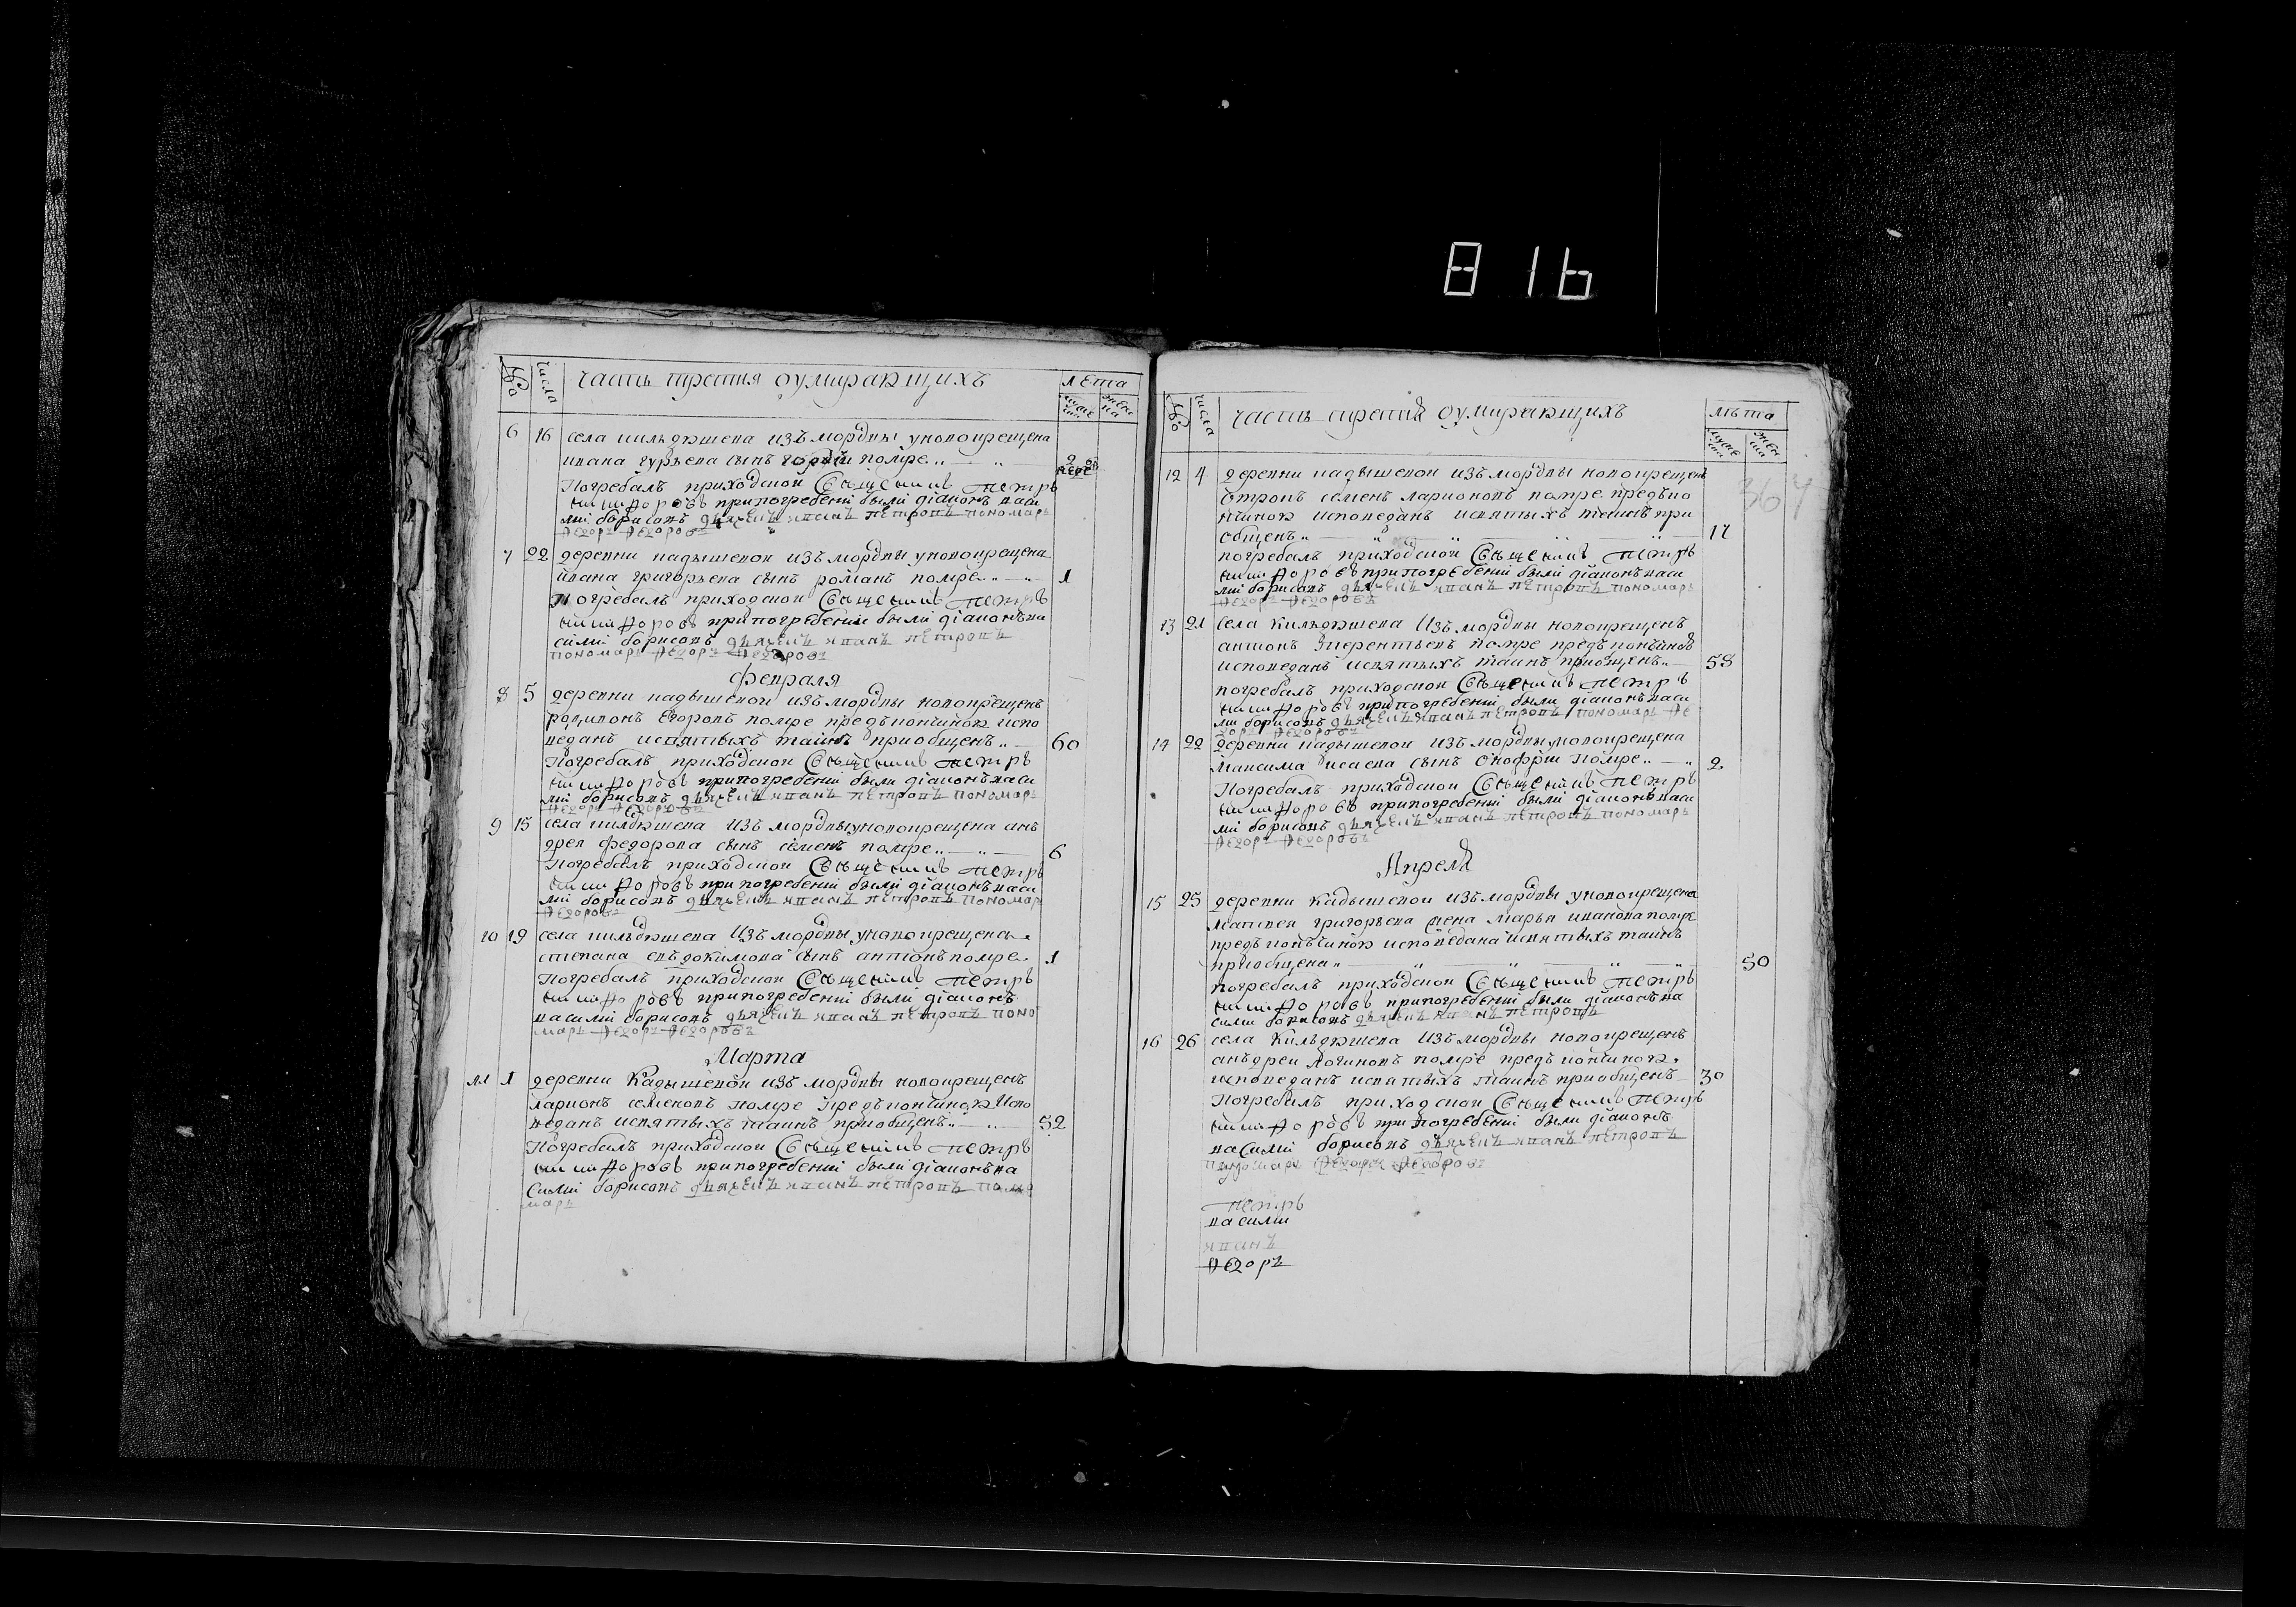 816
№
числа
часть третия оумирающихъ
лета
муже
женска
6 16 села кильдюшева изъ мордвы уновокрещена
ивана гурьева сынъ помре
2 мсе
Погребалъ приходскои Священникъ Петръ
Никифоровъ припогребенїи были дїаконъ васи
лїи борисовъ дьячекъ иванъ петровъ пономарь
Федоръ Федоровъ
7 22 деревни кадышевои изъ мордвы уновокрещена
ивана григорьева сынъ романъ помре 1
Погребалъ приходскои Священникъ Петръ
Никифоровъ припогребенїи были дїаконъ ва
силїи борисовъ дьячекъ иванъ петровъ
пономарь Федоръ Федоровъ
Февраля
8 5 деревни кадышевои изъ мордвы новокрещенъ
родионъ Егоровъ помре предъкончиною испо
веданъ исвятыхъ таинъ приобщенъ 60
Погребалъ приходскои Священникъ Петръ
Никифоровъ припогребенїи были дїаконъ васи
лїи борисовъ дьячекъ иванъ петровъ пономарь
Федоръ Федоровъ
9 15 села килдюшева изъ мордвы уновокрещена анъ
дрея федорова сынъ семенъ помре 6
Погребалъ приходскои Священникъ Петръ
Никифоровъ припогребенїи были дїаконъ васи
лїи борисовъ дьячекъ иванъ петровъ пономарь
Федоровъ
10 19 села кильдюшева Изъ мордвы уновокрещена
степана евъдокимова сынъ антонъ помре 1
Погребалъ приходскои Священникъ Петръ
Никифоровъ припогребенїи были дїаконъ
василїи борисовъ дьячекъ иванъ петровъ поно
марь Федоръ Федоровъ
Марта
11 1 деревни Кадышевои изъ мордвы новокрещенъ
ларионъ семеновъ помре предъкончиною Испо
веданъ исвятыхъ таинъ приобщенъ 52
Погребалъ приходскои Священникъ Петръ
Никифоровъ припогребенїи были дїаконъ ва
силїи борисовъ дьячекъ иванъ петровъ поно
марь
№
числа
часть третия оумирающихъ
лѣта
муже
женс
367
12 4 деревни кадышевои изъ мордвы новокрещенъ
отрокъ семенъ ларионовъ помре предъко
нчиною исповеданъ исвятыхъ таинъ при
общенъ 17
погребалъ приходскои Священникъ Петръ
Никифоровъ припогребенїи были дїаконъ васи
лїи борисовъ дьячекъ иванъ петровъ пономарь
Федоръ Федоровъ
13 21 села Кильдюшева Изъ мордвы новокрещенъ
антонъ терентьевъ помре предъкончиною
исповеданъ исвятыхъ таинъ приобщенъ 58
погребалъ приходскои Священникъ Петръ
Никифоровъ припогребенїи были дїаконъ васи
лїи борисовъ дьячекъ иванъ петровъ пономарь Фе
доръ Федоровъ
14 22 деревни кадышевои изъ мордвы уновокрещена
Максима исаева сынъ Онофрїи помре 2
Погребалъ приходскои Священникъ Петръ
Никифоровъ припогребенїи были дїаконъ васи
лїи борисовъ дьячекъ иванъ петровъ пономарь
Федоръ Федоровъ
Апреля
15 25 деревни Кадышевои изъ мордвы уновокрещена
матвея григорьева жена марья иванова помре
предъ конъчиною исповедана исвятыхъ таинъ
приобщена 50
погребалъ приходскои Священникъ Петръ
Никифоровъ припогребенїи были дїаконъ ва
силїи борисовъ дьячекъ иванъ петровъ
16 26 села Кильдюшева Изъ мордвы новокрещенъ
анъдреи логиновъ помре предъ кончиною
исповеданъ исвятыхъ таинъ приобщенъ 30
Погребалъ приходскои Священникъ Петръ
Никифоровъ припогребенїи были дїаконъ
василїи борисовъ дьячекъ иванъ петровъ
пономарь Федоръ Федоровъ
Петръ
василїи
иванъ
Федоръ